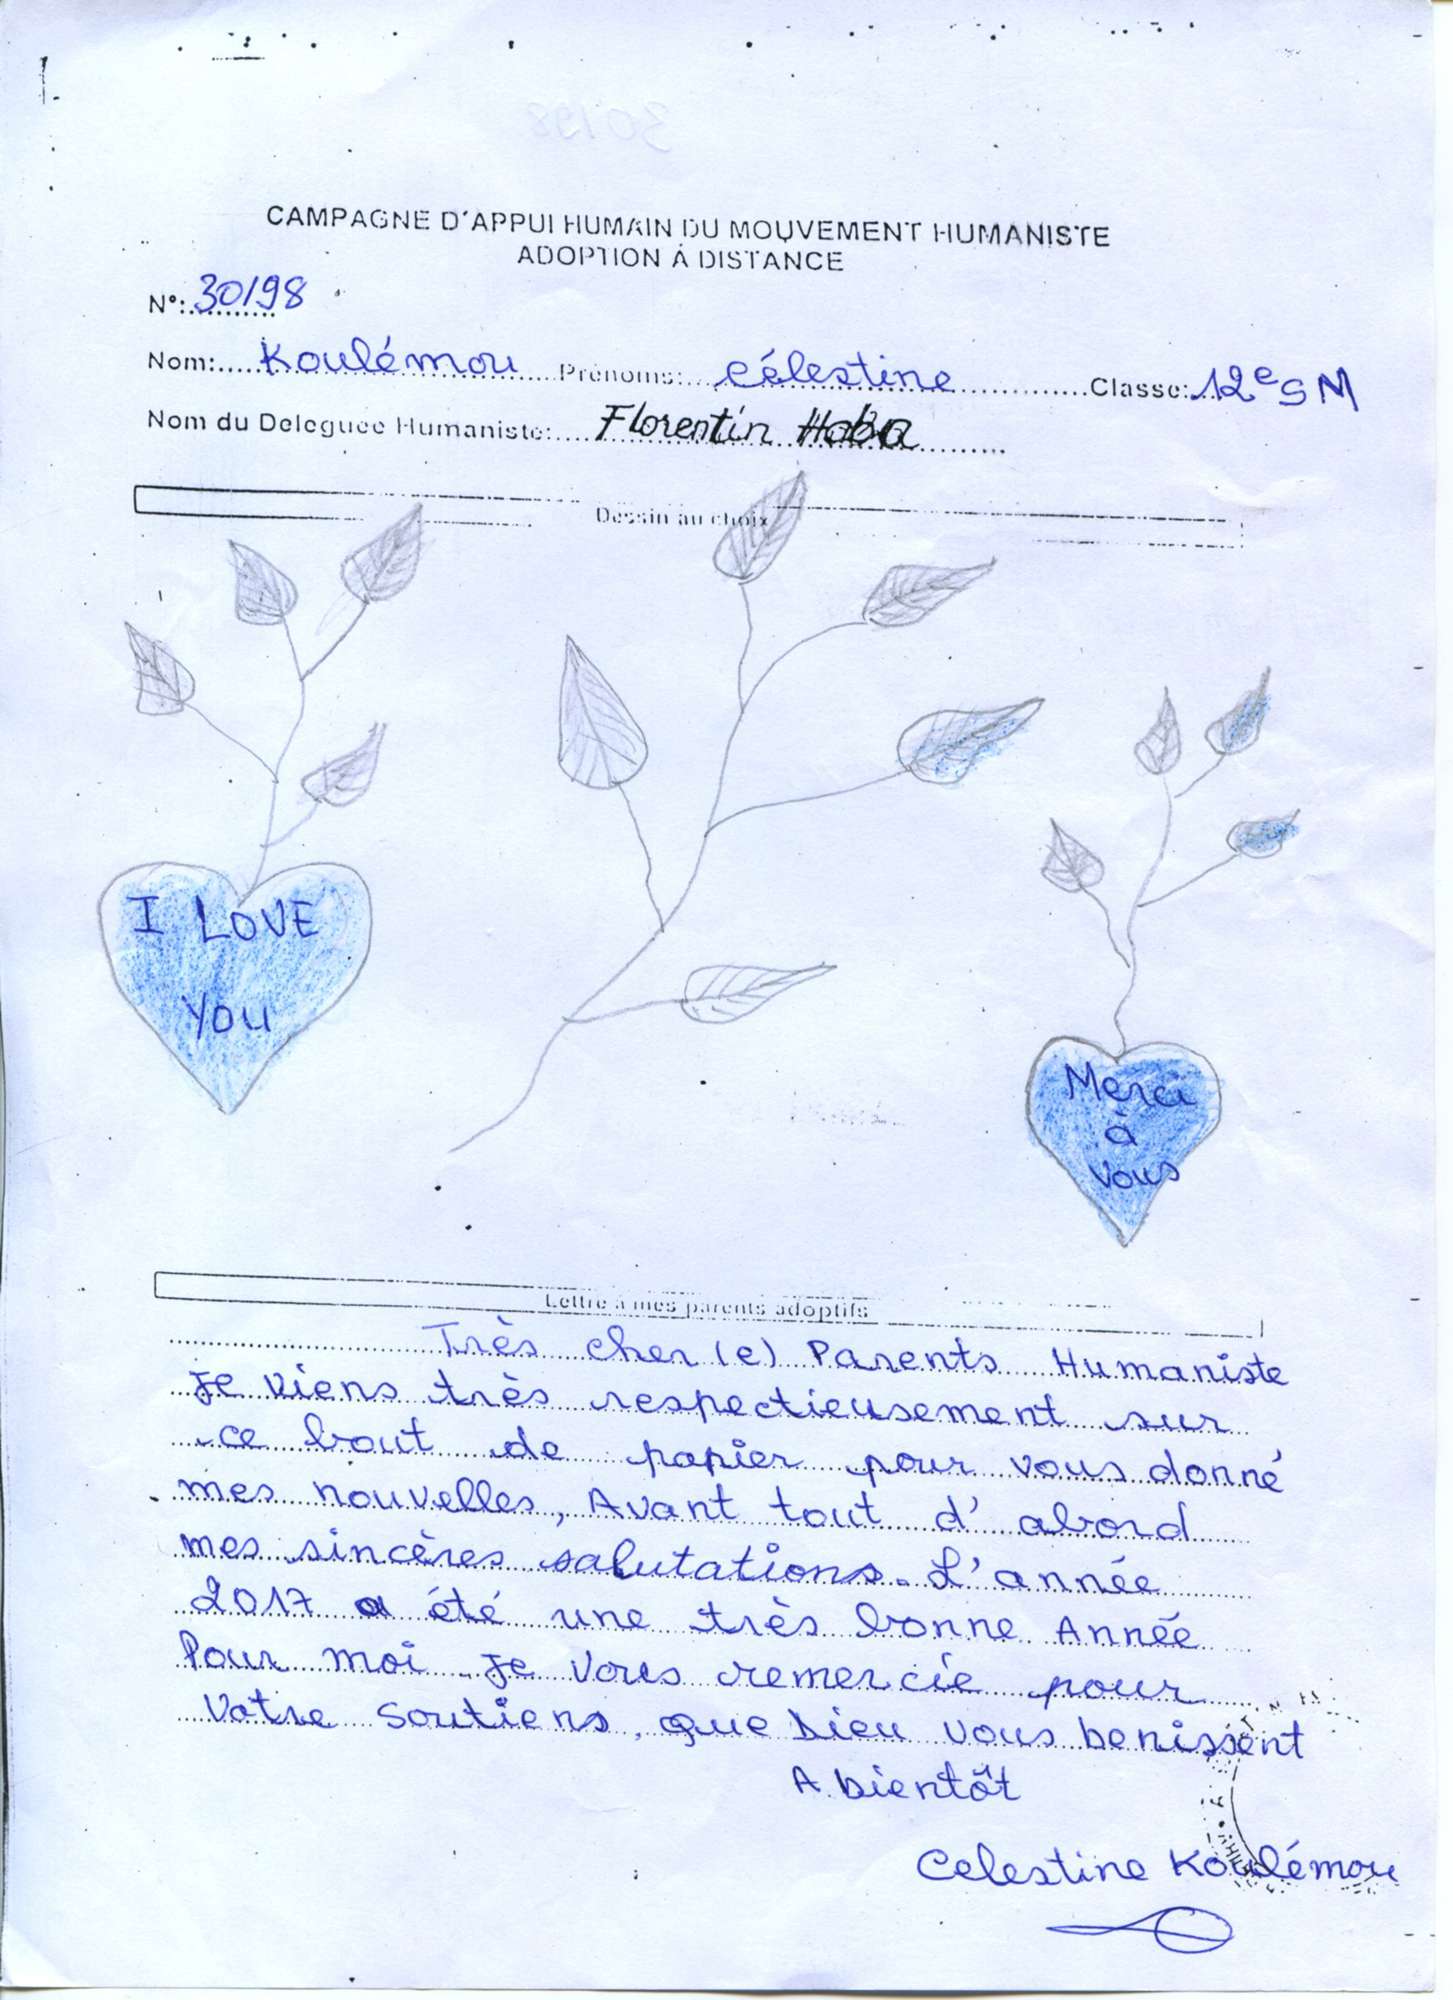 CAMPAGNE D'APPUI HUMAIN DU MOUVEMENT HUMANISTE
ADOPTION À DISTANCE
N°: 30198
Nom: Koulémou Prénoms: célestine Classe: 12e SM
Nom du Deleguee Humaniste: Florentin Haba
Dessin au choix
I LOVE
YOU
Merci
à
vous
Lettre à mes parents adoptifs
Très cher (e) Parents Humaniste
Je viens très respectieusement sur
ce bout de papier pour vous donné
mes nouvelles, Avant tout d'abord
mes sincères salutations. L'année
2017 a été une très bonne Année
Pour moi je vous remercie pour
Votre soutiens, que Dieu vous benissent
A bientôt
Celestine Koulémou